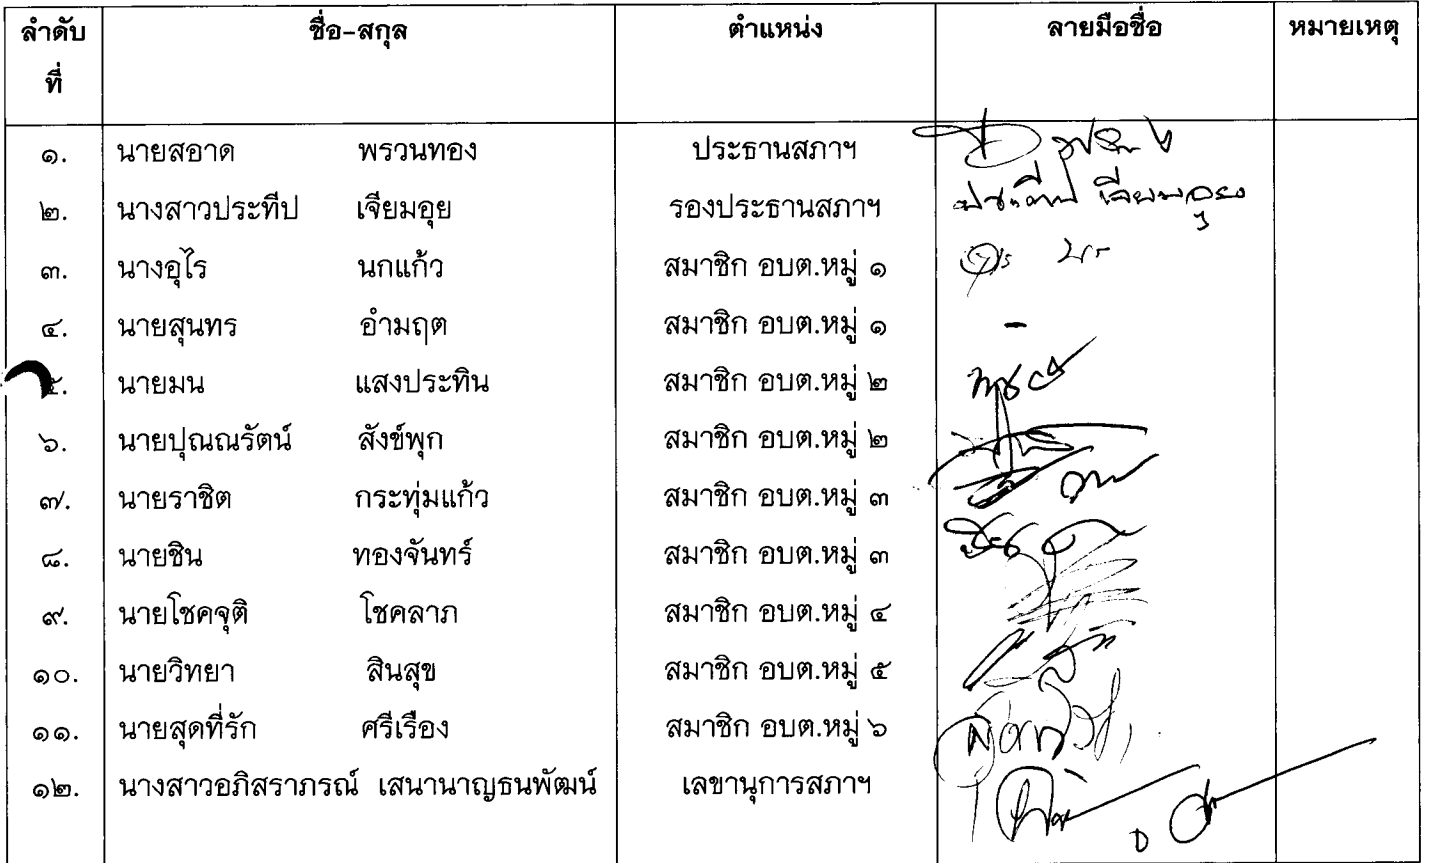 ลำดับที่ ชื่อ-สกุล ตำแหน่ง ลายมือชื่อ หมายเหตุ
๑. นายสอาด พรวนทอง ประธานสภาฯ
๒. นางสาวประทีป เจียมอุย รองประธานสภาฯ
๓. นางอุไร นกแก้ว สมาชิก อบต.หมู่ ๑
๔. นายสุนทร อำมฤต สมาชิก อบต.หมู่ ๑ -
๕. นายมน แสงประทิน สมาชิก อบต.หมู่ ๒
๖. นายปุณณรัตน์ สังข์พุก สมาชิก อบต.หมู่ ๒
๗. นายราชิต กระทุ่มแก้ว สมาชิก อบต.หมู่ ๓
๘. นายชิน ทองจันทร์ สมาชิก อบต.หมู่ ๓
๙. นายโชคจุติ โชคลาภ สมาชิก อบต.หมู่ ๔
๑๐. นายวิทยา สินสุข สมาชิก อบต.หมู่ ๕
๑๑. นายสุดที่รัก ศรีเรือง สมาชิก อบต.หมู่ ๖
๑๒. นางสาวอภิสราภรณ์ เสนานาญธนพัฒน์ เลขานุการสภาฯ